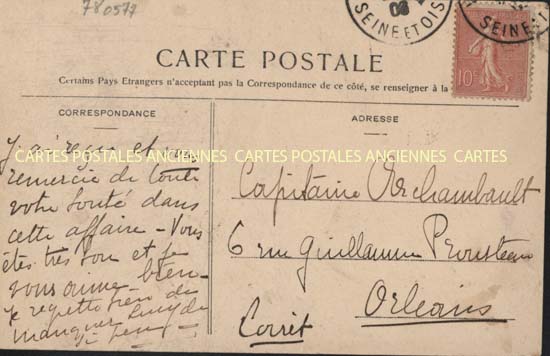 780577
06
SEINE ET OIS
SEINE-ET
10c
CARTE POSTALE
Certains Pays Etrangers n'acceptant pas la Correspondance de ce côté, se renseigner à la
CORRESPONDANCE
J'ai reçu et vous
remercie de toute
votre bonté dans
cette affaire - Vous
êtes très bon et je
vous aime - bien -
Je regrette bien de
manquer
ADRESSE
Capitaine Archambault
6 rue Guillaume Prousteau
Orléans
Loiret
CARTES POSTALES ANCIENNES CARTES POSTALES ANCIENNES CARTES